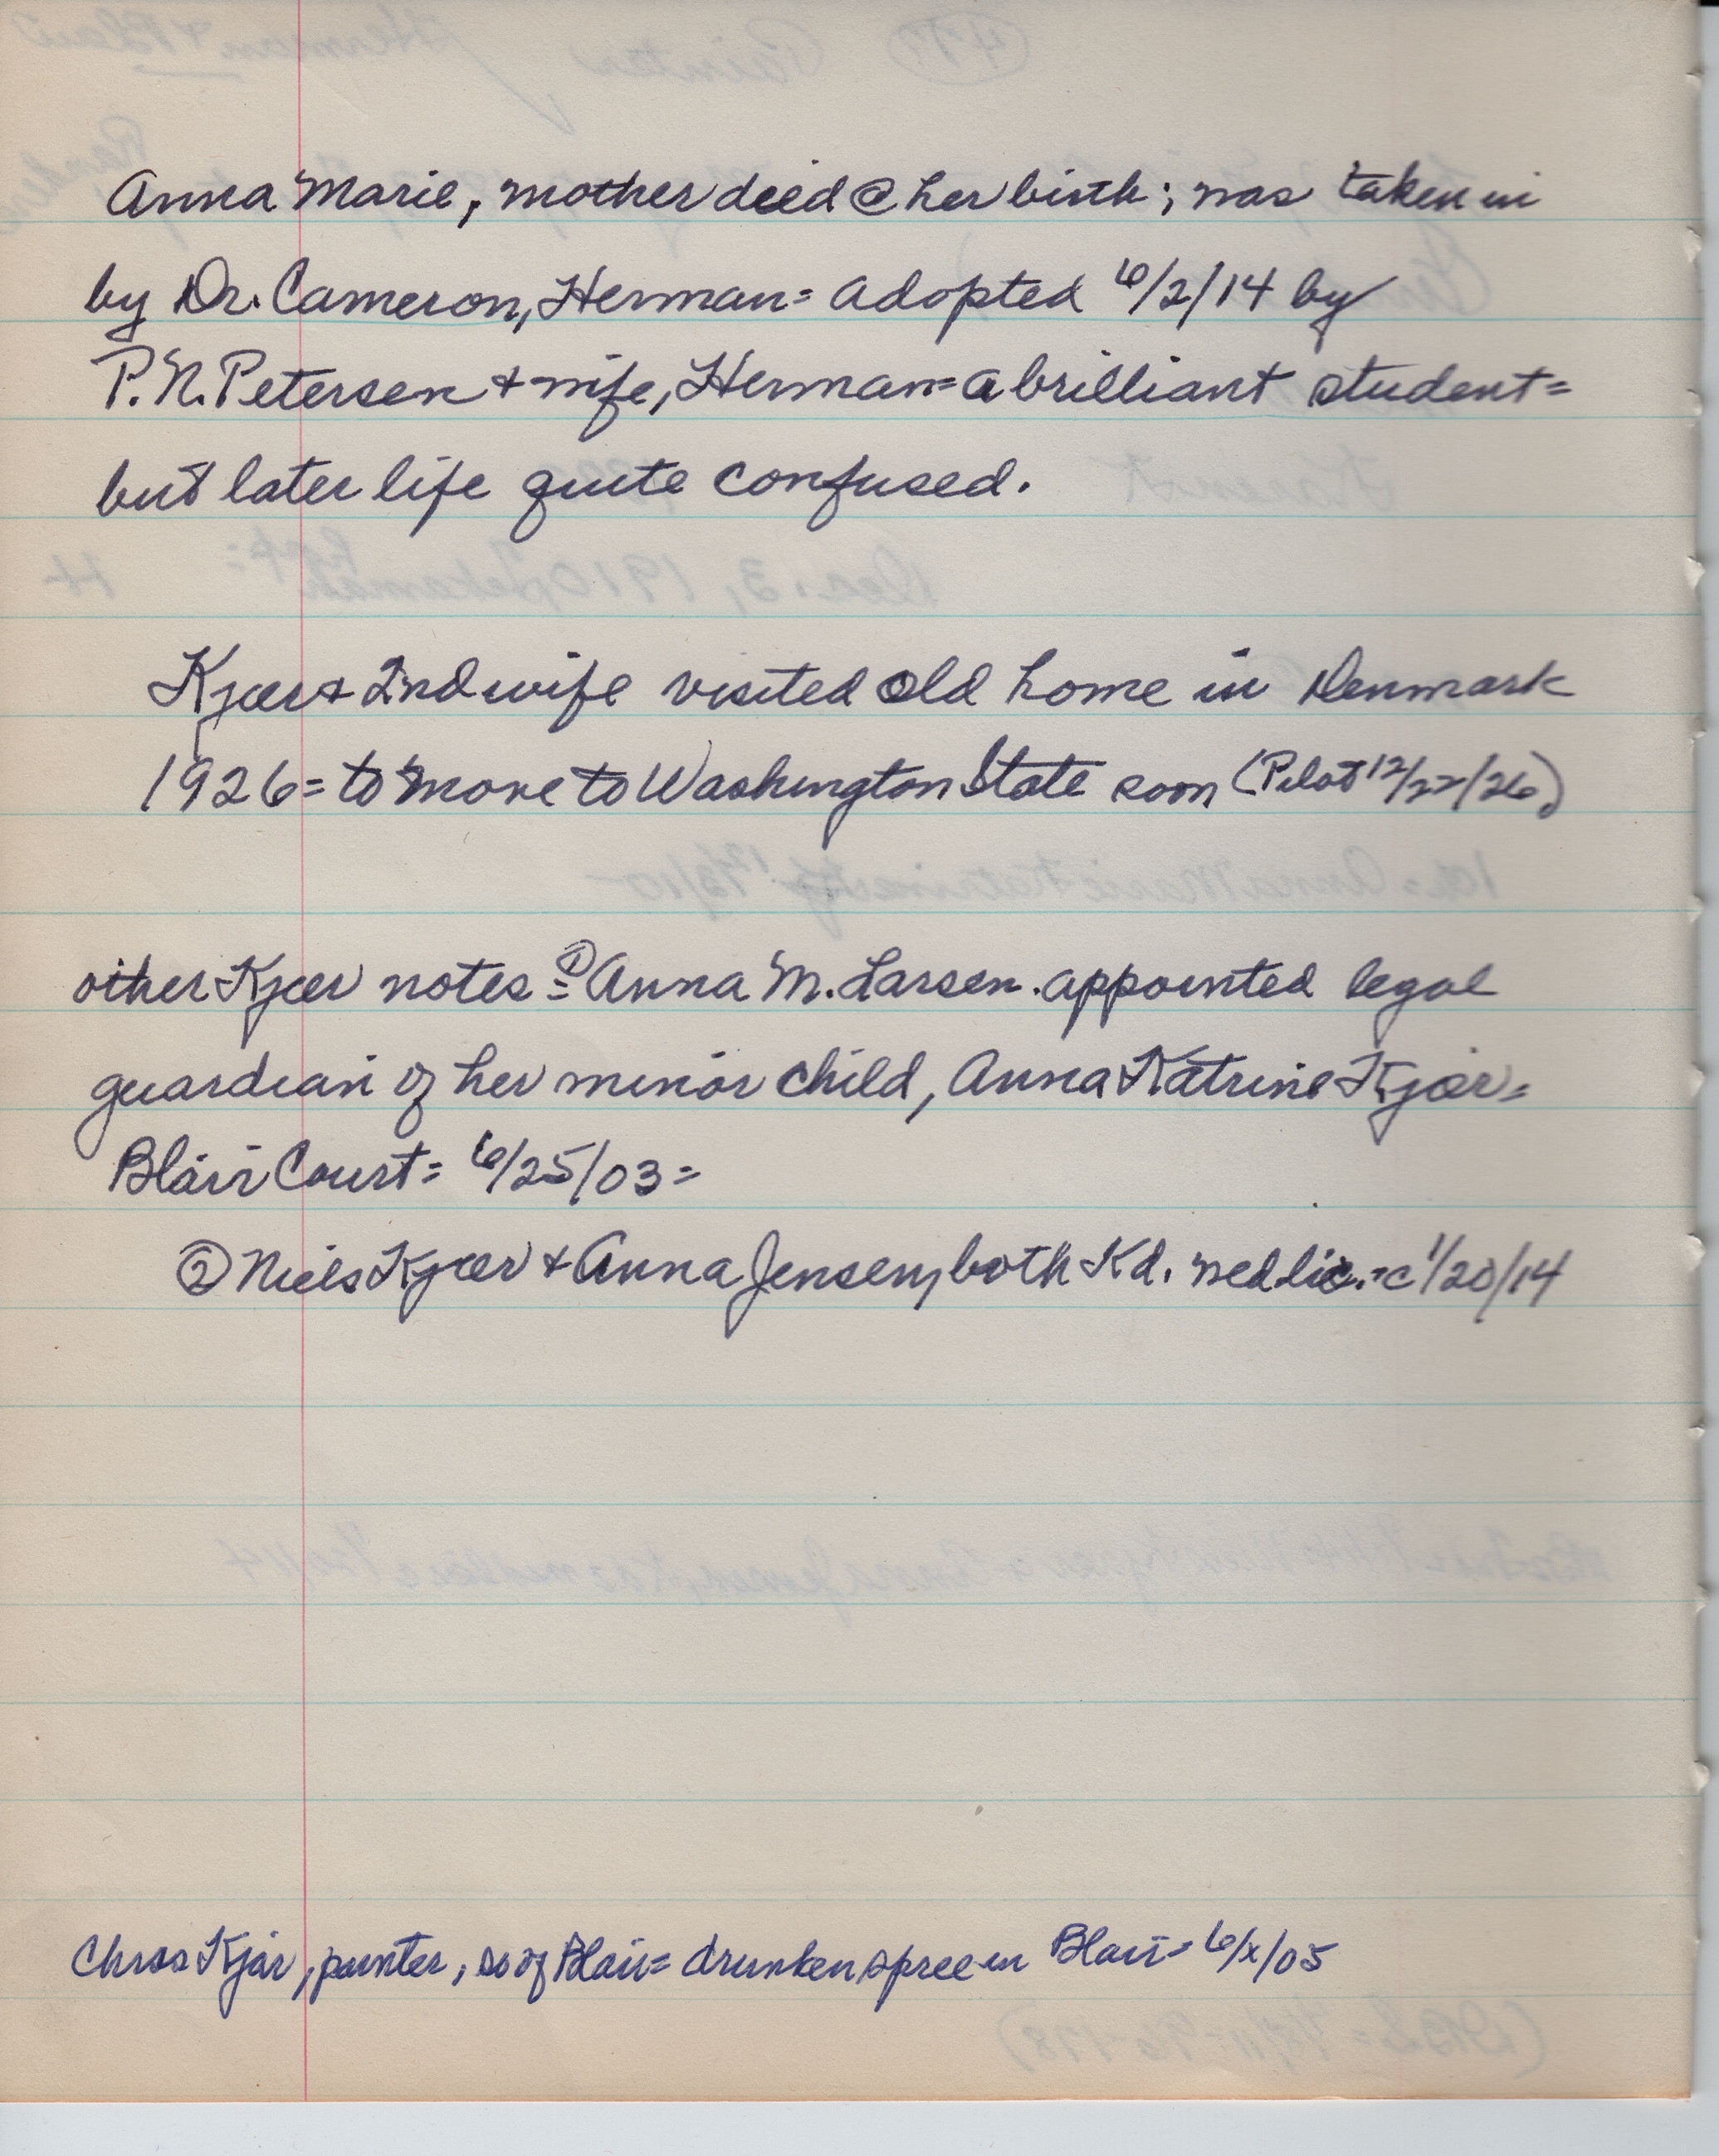 Anna Marie, mother died @ her birth; was taken in
by Dr. Cameron, Herman = adopted 6/2/14 by
P.N. Petersen + wife, Herman = a brilliant student =
but later life quite confused.
Kjær + 2nd wife visited old home in Denmark
1926 = to move to Washington State soon (Pilot 12/22/26)
other Kjær notes = ① Anna M. Larsen. appointed legal
guardian of her minor child, Anna Katrine Kjær =
Blair Court = 6/25/03 =
② Niels Kjær + Anna Jensen, both Kd. wed lic. = c 1/20/14
Chras Kjar, painter, so of Blair = drunken spree in Blair = 6/x/05